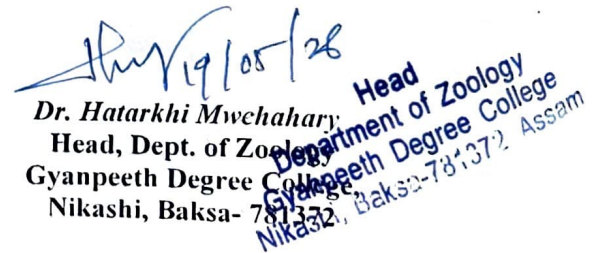 19/05/26
Dr. Hatarkhi Mwchahary
Head, Dept. of Zoology
Gyanpeeth Degree College,
Nikashi, Baksa- 781372
Head
Department of Zoology
Gyanpeeth Degree College
Nikashi, Baksa-781372 Assam